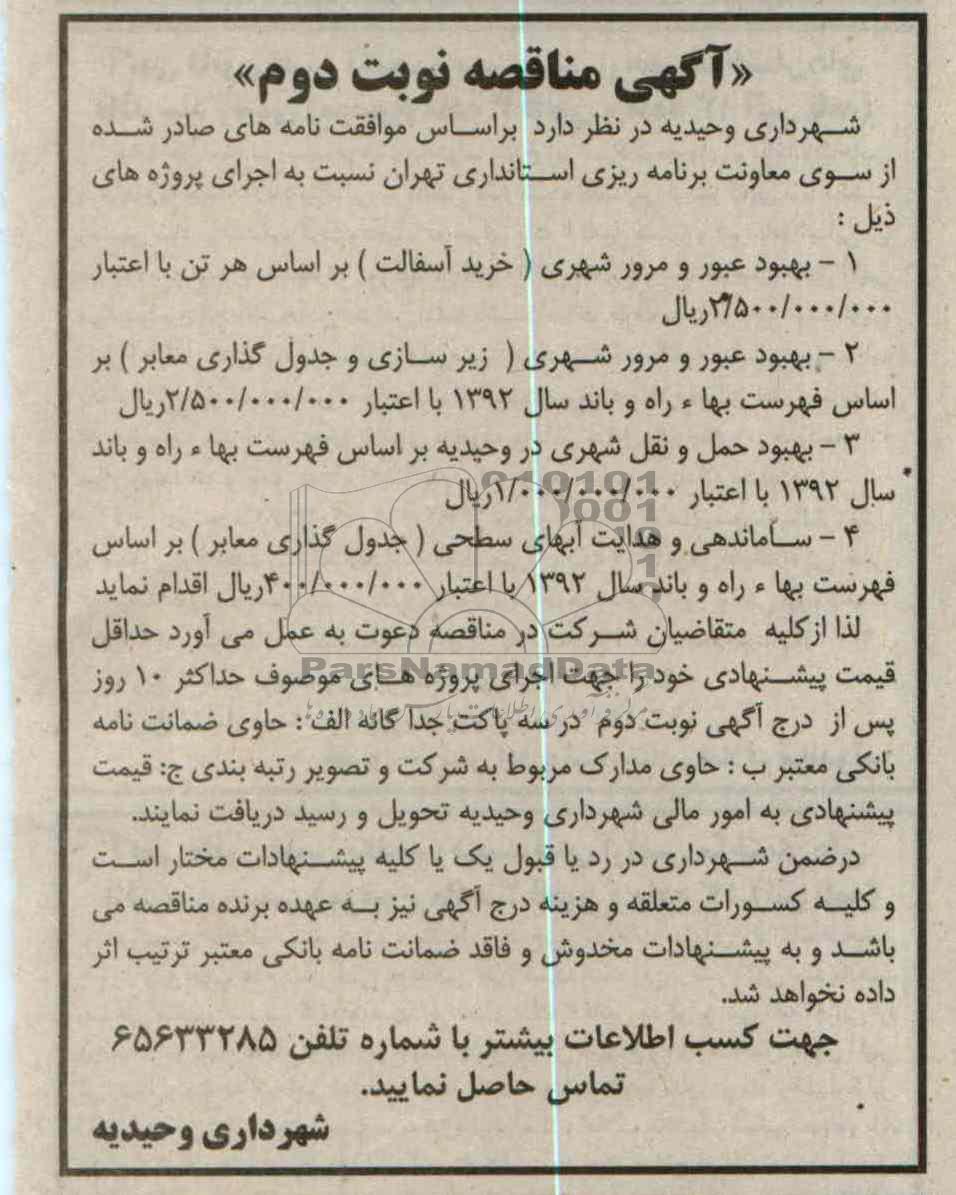 «آگهی مناقصه نوبت دوم»
شهرداری وحیدیه در نظر دارد براساس موافقت نامه های صادر شده
از سوی معاونت برنامه ریزی استانداری تهران نسبت به اجرای پروژه های
ذیل :
۱ - بهبود عبور و مرور شهری ( خرید آسفالت ) بر اساس هر تن با اعتبار
۲/۵۰۰/۰۰۰/۰۰۰ریال
۲ - بهبود عبور و مرور شهری ( زیر سازی و جدول گذاری معابر ) بر
اساس فهرست بها ء راه و باند سال ۱۳۹۲ با اعتبار ۲/۵۰۰/۰۰۰/۰۰۰ریال
۳ - بهبود حمل و نقل شهری در وحیدیه بر اساس فهرست بها ء راه و باند
سال ۱۳۹۲ با اعتبار ۱/۰۰۰/۰۰۰/۰۰۰ریال
۴ - ساماندهی و هدایت آبهای سطحی ( جدول گذاری معابر ) بر اساس
فهرست بها ء راه و باند سال ۱۳۹۲ با اعتبار ۴۰۰/۰۰۰/۰۰۰ریال اقدام نماید
لذا ازکلیه متقاضیان شرکت در مناقصه دعوت به عمل می آورد حداقل
ParsNamadData
قیمت پیشنهادی خود را جهت اجرای پروژه های موصوف حداکثر ۱۰ روز
پس از درج آگهی نوبت دوم در سه پاکت جدا گانه الف : حاوی ضمانت نامه
بانکی معتبر ب : حاوی مدارک مربوط به شرکت و تصویر رتبه بندی ج: قیمت
پیشنهادی به امور مالی شهرداری وحیدیه تحویل و رسید دریافت نمایند.
درضمن شهرداری در رد یا قبول یک یا کلیه پیشنهادات مختار است
و کلیه کسورات متعلقه و هزینه درج آگهی نیز به عهده برنده مناقصه می
باشد و به پیشنهادات مخدوش و فاقد ضمانت نامه بانکی معتبر ترتیب اثر
داده نخواهد شد.
جهت کسب اطلاعات بیشتر با شماره تلفن ۶۵۶۳۳۲۸۵
تماس حاصل نمایید.
شهرداری وحیدیه